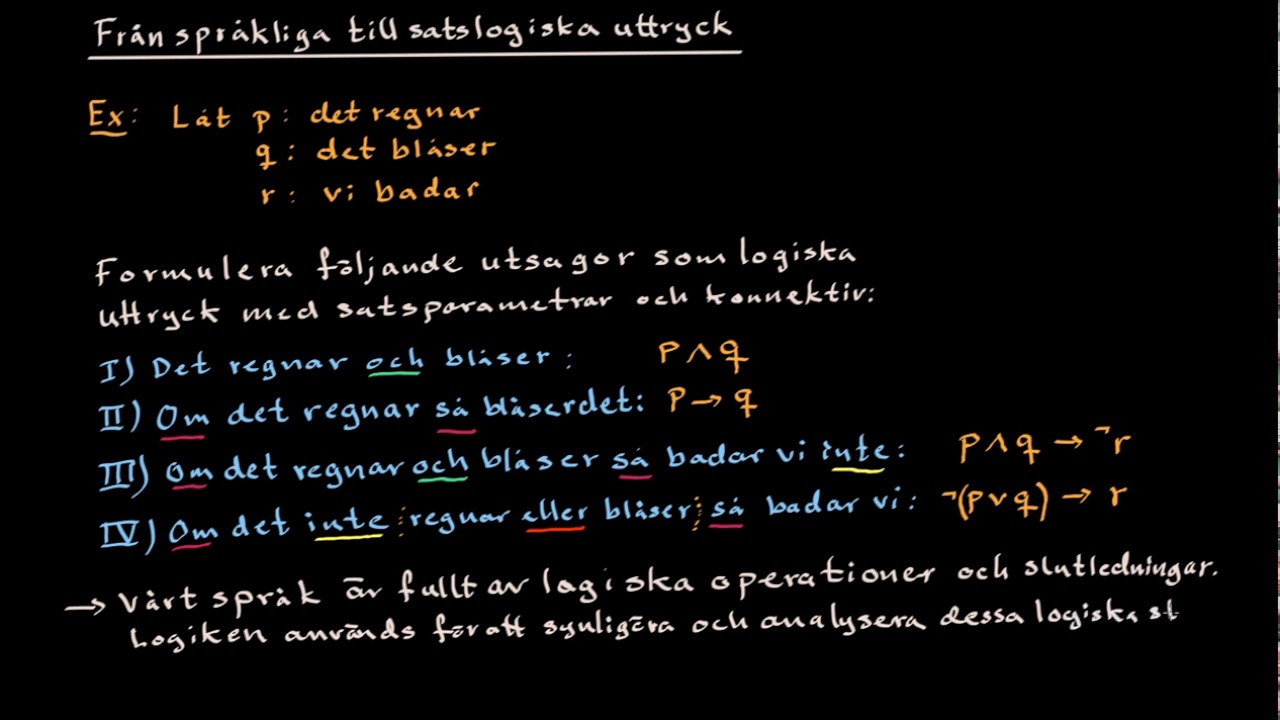 Från språkliga till satslogiska uttryck
Ex: Låt p: det regnar
q: det blåser
r: vi badar
Formulera följande utsagor som logiska
uttryck med satsparametrar och konnektiv:
I) Det regnar och blåser: p ∧ q
II) Om det regnar så blåser det: p → q
III) Om det regnar och blåser så badar vi inte: p ∧ q → ¬r
IV) Om det inte regnar eller blåser så badar vi: ¬(p ∨ q) → r
→ Vårt språk är fullt av logiska operationer och slutledningar.
Logiken används för att synligöra och analysera dessa logiska st